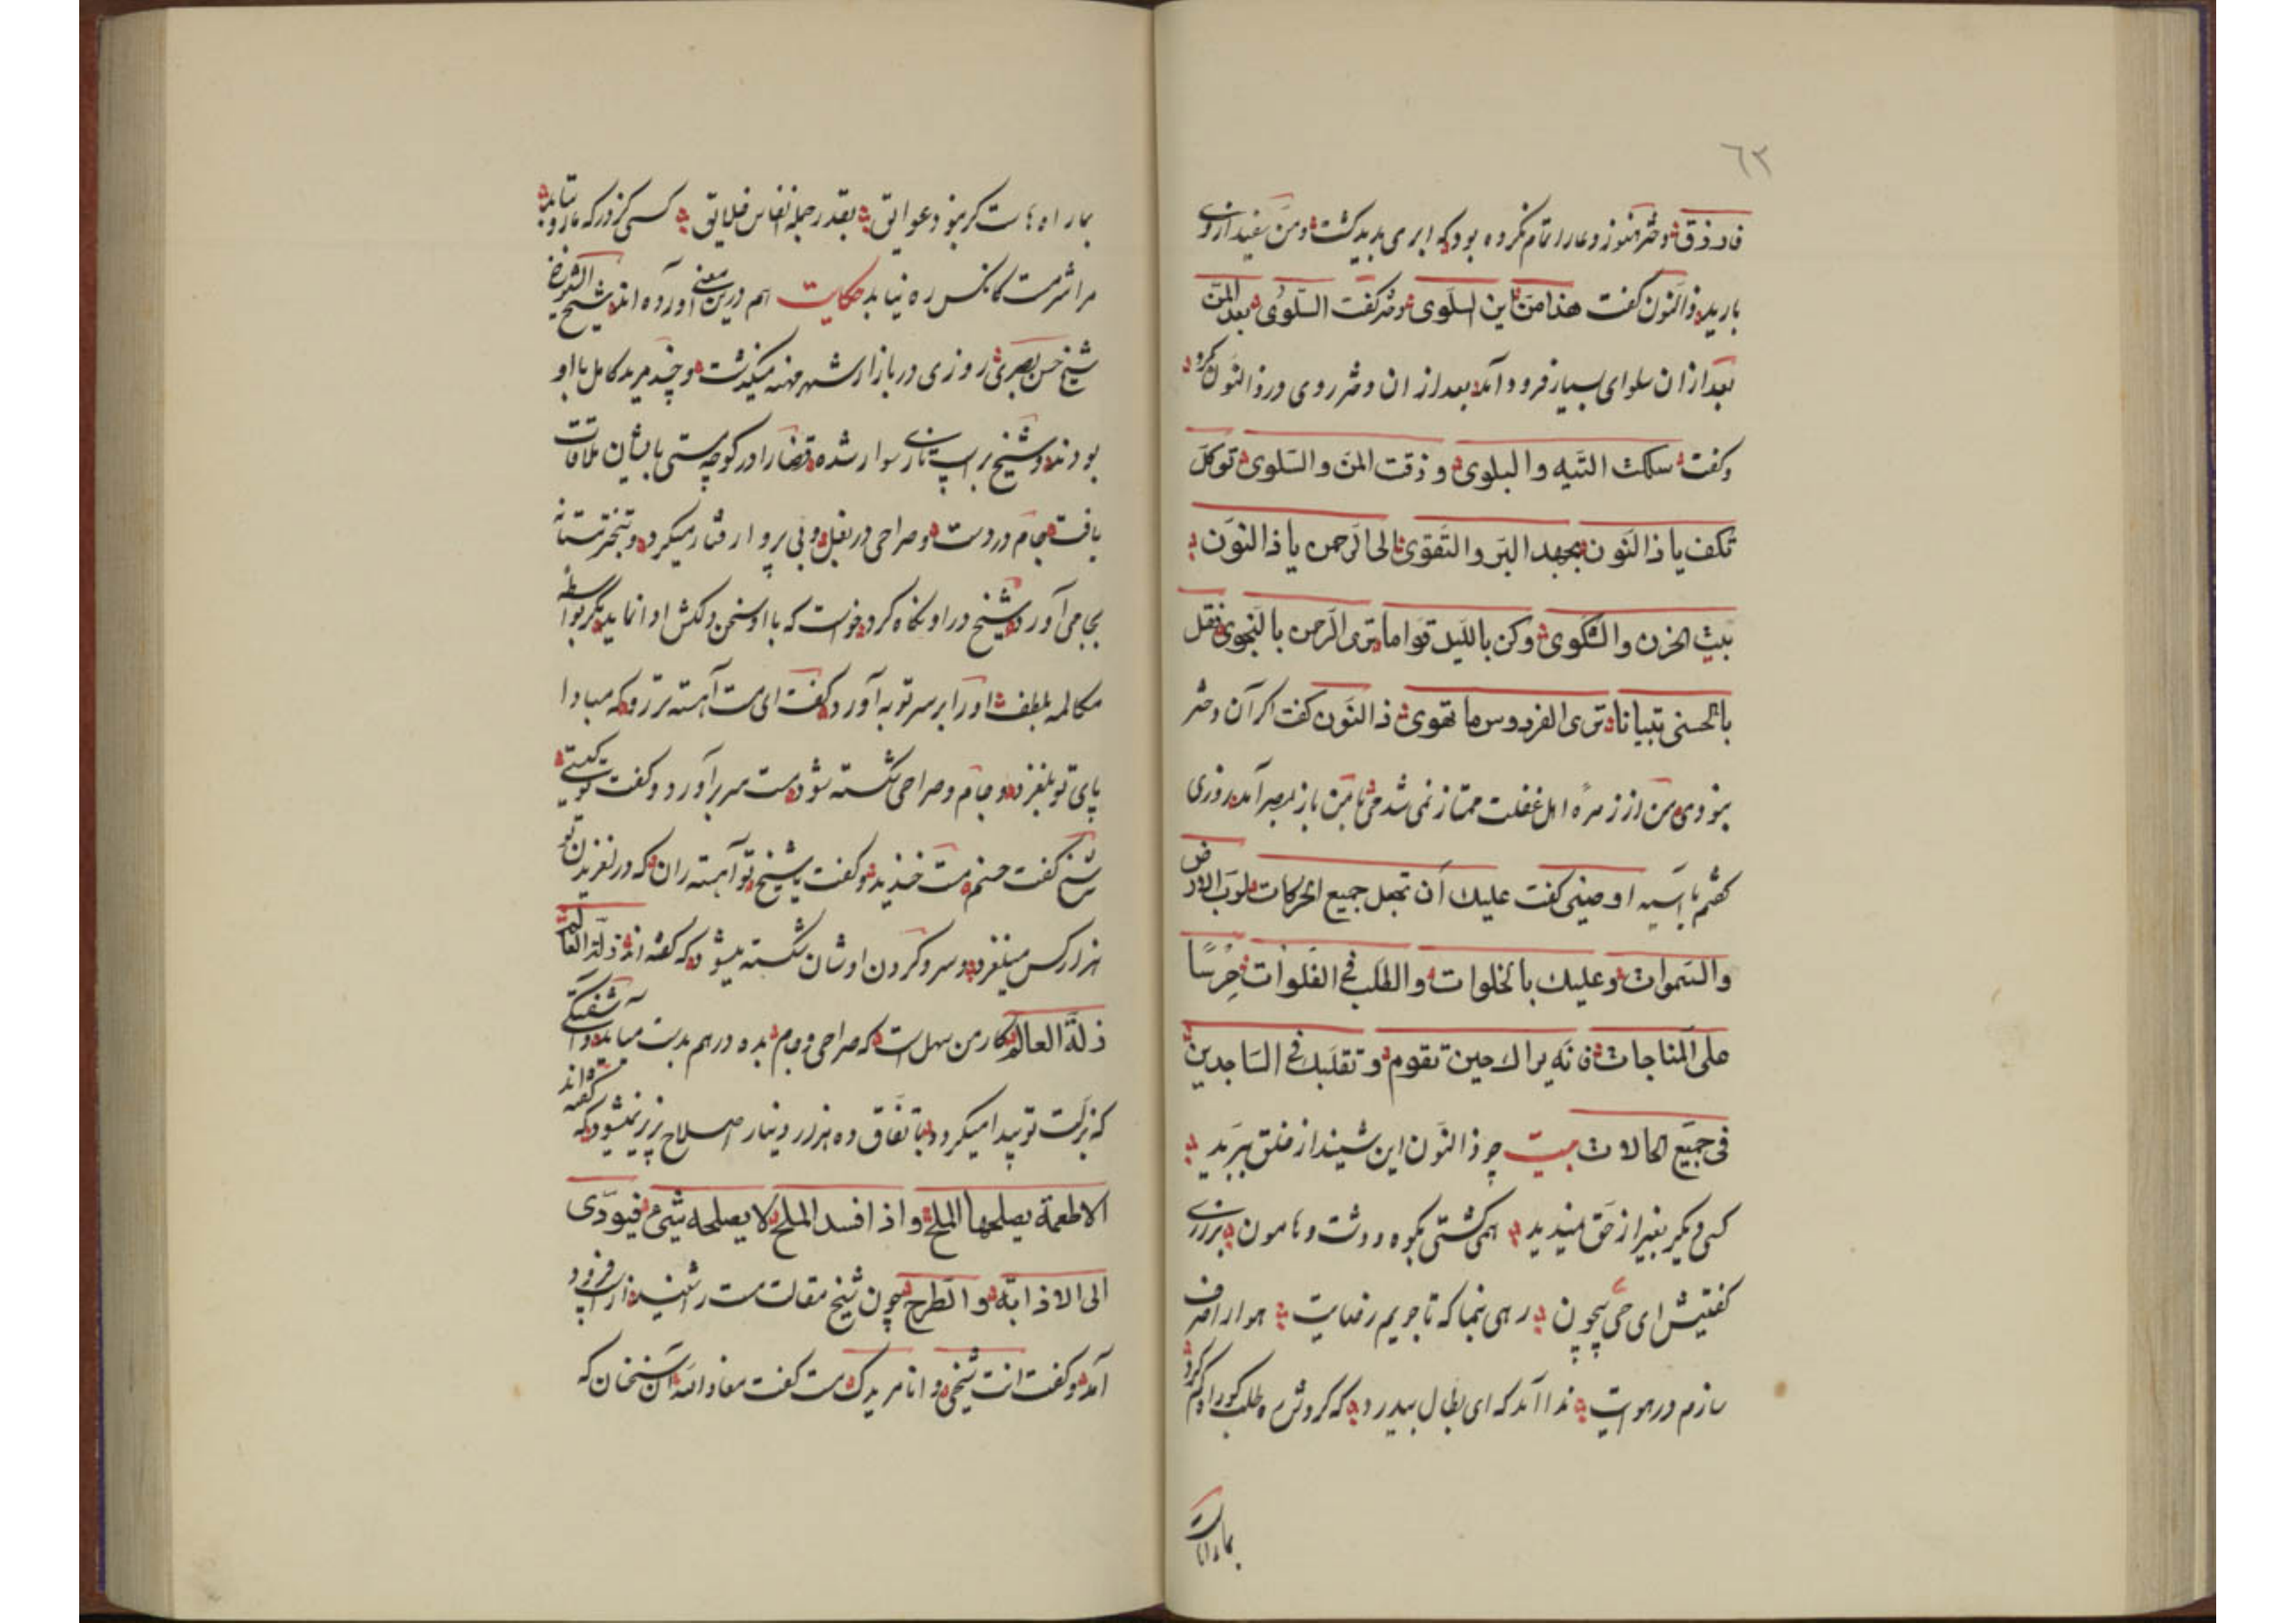 ٦٢
فارزق دختر هنوز دعا را تمام نکرده بود که ابری پدید کشت و من سفید ازوی
بارید ذالنون کفت هذا من این السلوی دختر کفت السلوی بعد المن
بعد ازان سلوای بسیار فرود آمد بعد از ان دختر روی در ذالنون کرد
و کفت سلکت التیه والبلوی و ذقت المن والسلوی توکل
تکف یا ذالنون بجهد البر والتقوی الی الرحمن یا ذالنون
ببث الحزن والشکوی و کن باللیل قواما تری الرحمن بالنجوی فقل
بالحسنی تبیانا تری الفردوس ما تهوی ذالنون کفت اکر آن دختر
نبودی من از زمره اهل غفلت ممتاز نمی شدمی تا من باز بمصر آمد روزی
کفتم یا آسیه اوصینی کفت علیك أن تجعل جمیع الحرکات لرب الارض
والسموات وعلیك بالخلوات والطلب فی الفلوات حرسا
علی المناجات فانه یراك حین تقوم و تقلبك فی الساجدین
فی جمیع الحالات بیت چو ذالنون این شنید از خلق ببرید
کسی دیکر بغیر از حق ندید همی کشتی بکوه و دشت و هامون بزاری
کفتیش ای حی بیچون رهی بنما که تا جویم رضایت هوا را صرف
سازم در هوایت ندا آمد که ای بطال بیدرد که کردش ره طلب کو راه کم کرد
بما راهاست
بما راهاست کر نبود عوایق بقدر جمله انفاس خلایق کسی کز درکه ما رو بتابد
مرا شرمست کانکس ره نیابد حکایت هم درین معنی آورده اند شیخ الشیوخ
شیخ حسن بصری روزی در بازار شهر مهنه میکذشت و چند مرید کامل با او
بودند و شیخ بر اسب تازی سوار شده قضارا در کوچه مستی با یشان ملاقات
یافت جام در دست و صراحی در بغل و بی پروا رفتار میکرد و تبختر مستانه
بجا می آورد شیخ در او نکاه کرد خواست که با او سخن دلکش ادا نماید مکر بواسطه
مکالمه بلطف او را بر سر توبه آورد کفت ای مست آهسته تر رو که مبادا
پای تو بلغزد و جام و صراحی شکسته شود مست سر برآورد و کفت تو کیستی
شیخ کفت حسنم مست خندید و کفت یا شیخ تو آهسته ران که در لغزیدن تو
هزار کس میلغزد و سر و کردن اوشان شکسته میشود که کفته اند ذلة العالم
ذلة العالم کار من سهل است که صراحی و جام بده درهم بدست میاید و آشفتکی
که بزلت تو پیدا میکردد باتفاق ده هزار دینار اصلاح پذیر نیشود که کفته اند
الاطعمة یصلحها الملح واذا افسد الملح لا یصلحه شیئ فیودی
الی الاذابة والطرح چون شیخ مقالت مست را شنید از اسب فرود
آمد و کفت انت شیخی و انا مریدك مست کفت معاذ الله آن سخنان که